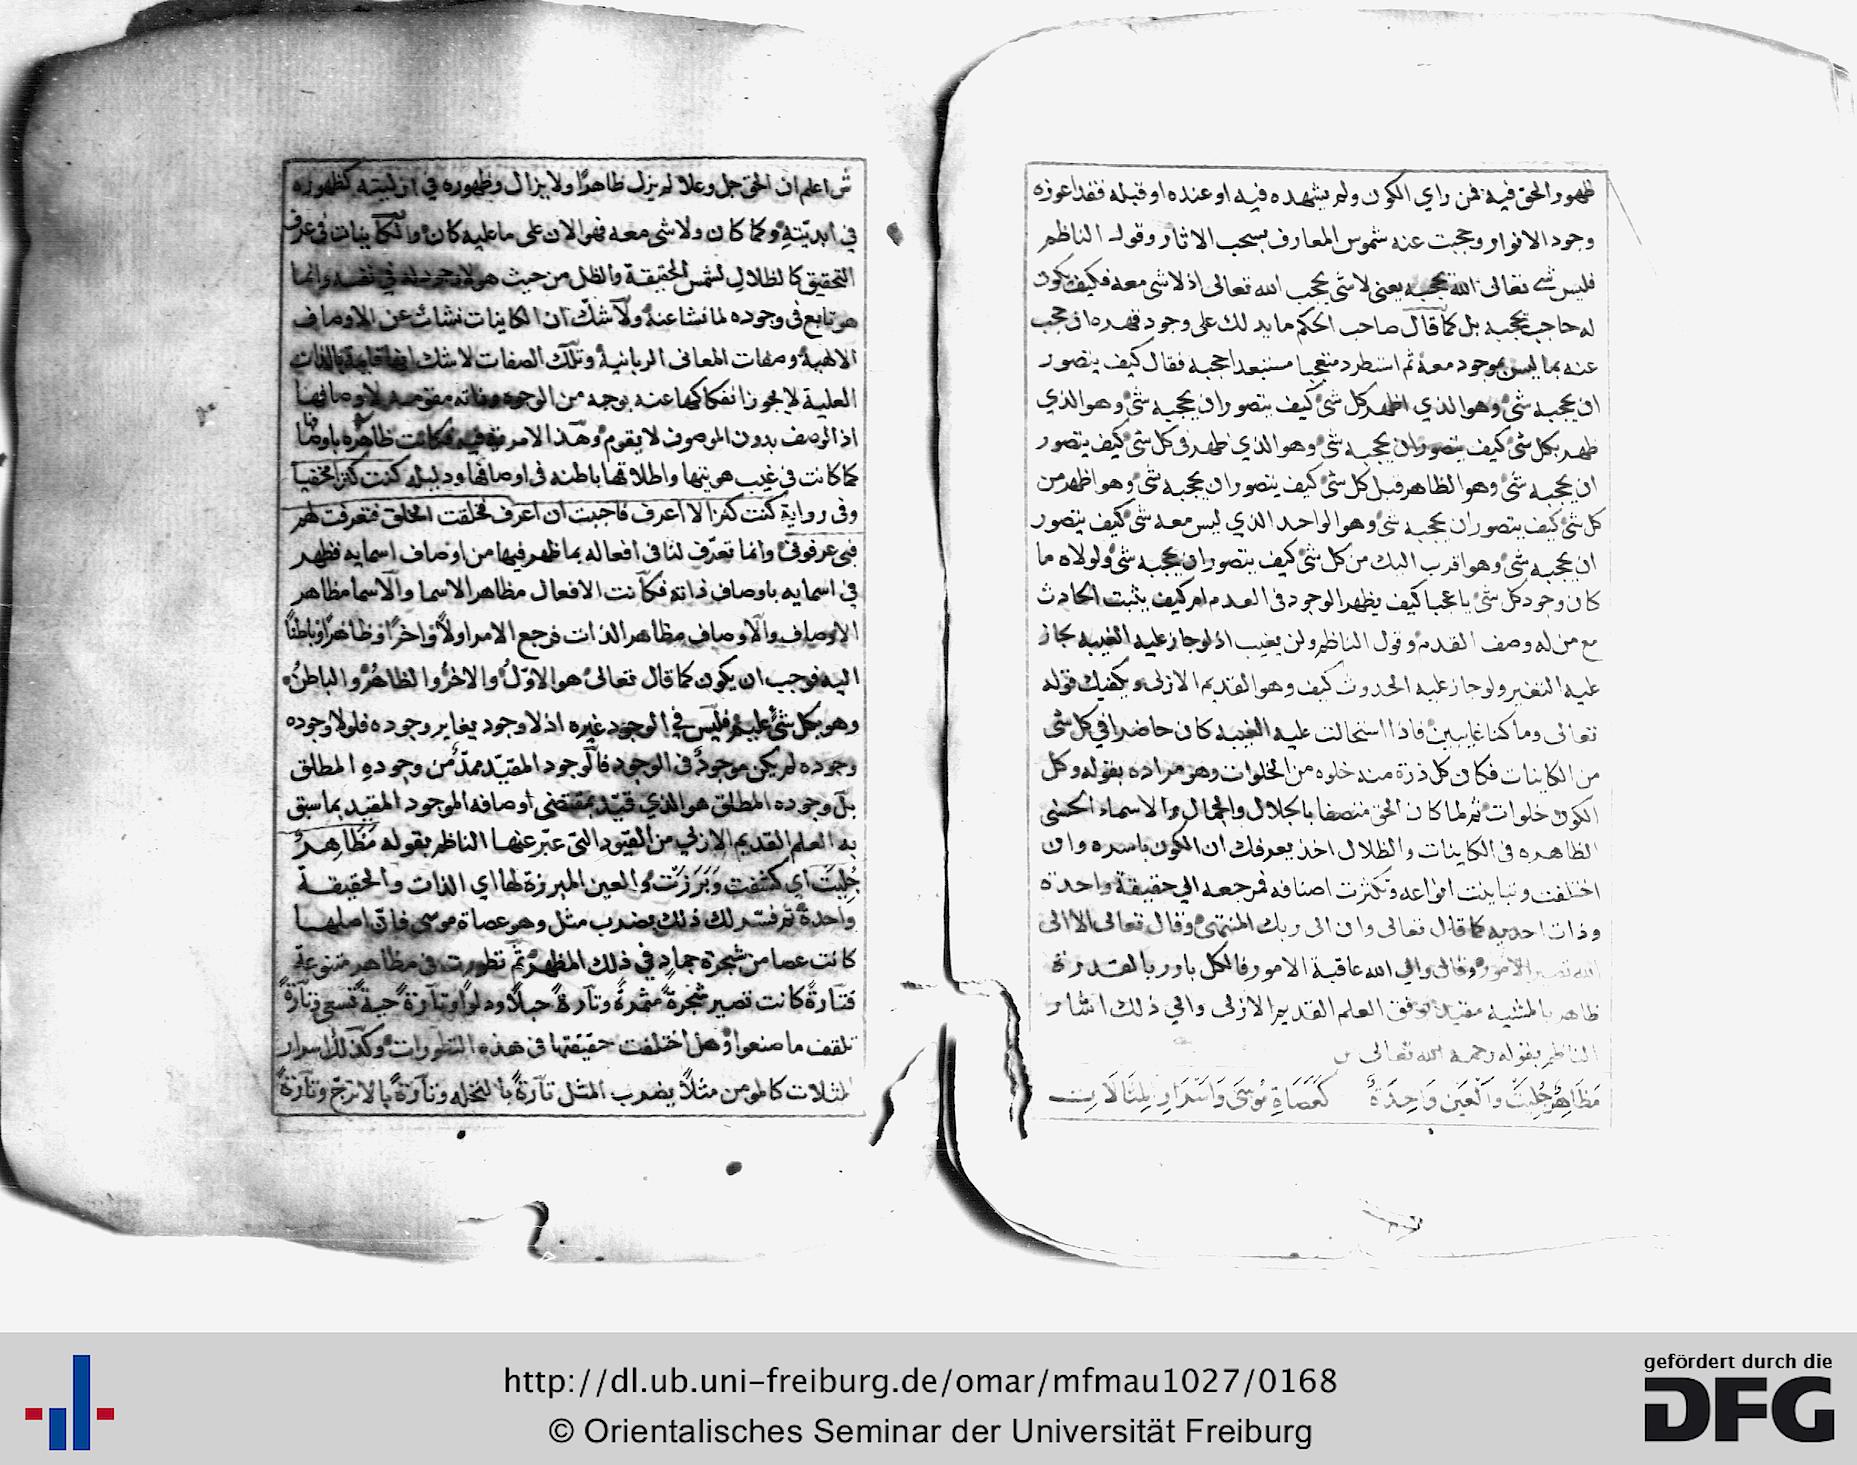 ظهور الحق فيه فمن راي الكون ولم يشهده فيه او عنده او قبله فقد اعوزه
وجود الانوار وحجبت عنه شموس المعارف بسحب الاثار وقول الناظم
فليس شي تعالى الله يحجبه يعنى لا شي يحجب الله تعالى اذ لا شي معه فكيف يكون
له حاجب يحجبه بل كما قال صاحب الحكم مما يدلك على وجود قهره ان حجب
عنه بما ليس بموجود معه ثم استطرد متعجبا مستبعدا حجبه فقال كيف يتصور
ان يحجبه شئ وهو الذي اظهر كل شئ كيف يتصور ان يحجبه شئ وهو الذي
ظهر بكل شئ كيف يتصور ان يحجبه شئ وهو الذي ظهر فى كل شئ كيف يتصور
ان يحجبه شئ وهو الظاهر قبل كل شئ كيف يتصور ان يحجبه شئ وهو اظهر من
كل شئ كيف يتصور ان يحجبه شئ وهو الواحد الذي ليس معه شئ كيف يتصور
ان يحجبه شئ وهو اقرب اليك من كل شئ كيف يتصور ان يحجبه شئ ولولاه ما
كان وجود كل شئ يا عجبا كيف يظهر الوجود فى العدم ام كيف يثبت الحادث
مع من له وصف القدم وقول الناظم ولن يغيب اذ لو جاز عليه الغيبه لجاز
عليه التغير ولو جاز عليه الحدوث كيف وهو القديم الازلى ويكفيك قوله
تعالى وما كنا غايبين فاذا استحالت عليه الغيبه كان حاضرا في كل شى
من الكاينات فكان كل ذرة منه خلوه من الخلوات وهو مراده بقوله وكل
الكون خلوات ثم لما كان الحق متصفا بالجلال والجمال والاسماء الحسنى
الظاهره فى الكاينات والظلال اخذ يعرفك ان الكون باسره وان
اختلفت وتباينت انواعه وتكثرت اصنافه فمرجعه الي حقيقة واحدة
وذات احديه كما قال تعالى وان الى ربك المنتهى وقال تعالى الا الى
الله تصير الامور وقال والي الله عاقبة الامور فالكل بارز بالقدرة
ظاهر بالمشيه مقيد بوفق العلم القديم الازلى والي ذلك اشار
الناظم بقوله رحمه الله تعالى ص
مَظَاهِرٌ جُلِيَتْ وَالْعَين وَاحِدَةٌ كَعَصَاةِ مُوسَى وَاَسْرَارٍ لِمَثَالَاتِ
ش اعلم ان الحق جل وعلا لم يزل ظاهرًا ولا يزال وظهوره في ازليته كظهوره
في ابديّته وكما كان ولا شى معه فهو الان على ما عليه كان والكاينات فى عرف
التحقيق كالظلال لشمس الحقيقة والظل من حيث هو لا وجود له في نفسه وانما
هو تابع فى وجوده لما نشا عنه ولا شك ان الكاينات نشات عن الاوصاف
الالهية وصفات المعانى الربانية وتلك الصفات لا شك انها قايمة بالذات
العلية لا يجوز انفكاكها عنه بوجه من الوجوه وذاته مقومه لاوصافها
اذ الوصف بدون الموصوف لا يقوم وهذا الامر فكانت ظاهره باوصافها
كما كانت فى غيب هويتها واطلاقها باطنه فى اوصافها ودليله كنت كنزا مخفيا
وفى رواية كنت كنزا لا اعرف فاحببت ان اعرف فخلقت الخلق فتعرفت لهم
فبى عرفونى وانما تعرّف لنا فى افعاله بما ظهر فيها من اوصاف اسمايه فظهر
في اسمايه باوصاف ذاته فكانت الافعال مظاهر الاسما والاسما مظاهر
الاوصاف والاوصاف مظاهر الذات فرجع الامر اولاً واخرًا وظاهرًا وباطنًا
اليه فوجب ان يكون كما قال تعالى هو الاوّلُ والاخرُ والظاهرُ والباطنُ
وهو بكل شئ عليم فليس في الوجود غيره اذ لا وجود يغاير وجوده فلولا وجوده
وجوده لم يكن موجودٌ فى الوجود فالوجود المقيّد ممدّ من وجوده المطلق
بل وجوده المطلق هو الذي قيّد بمقتضى اوصافه الموجود المقيد بما سبق
به العلم القديم الازلي من القيود التى عبّر عنها الناظم بقوله مَظَاهِرٌ
جُلِيَتْ اي كشفت وَبَرَزَتْ والعين المبرزة لها اي الذات والحقيقة
واحدة ثم فسّر لك ذلك بضرب مثل وهو عصاة موسى فان اصلها
كانت عصا من شجرة جماد في ذلك المظهر ثم تطورت فى مظاهر متنوعة
فتارةً كانت تصير شجرةً مثمرةً وتارةً حبلاً ودلوًا وتارةً حية تسعى وتارةً
تلقف ما صنعوا وهل اختلفت حقيقتها فى هذه التطورات وكذلك اسرار
لمثلات كالمومن مثلاً يضرب المثل تارةً بالنخله وتارةً بالاترجّ وتارةً
http://dl.ub.uni-freiburg.de/omar/mfmau1027/0168
© Orientalisches Seminar der Universität Freiburg
gefördert durch die
DFG